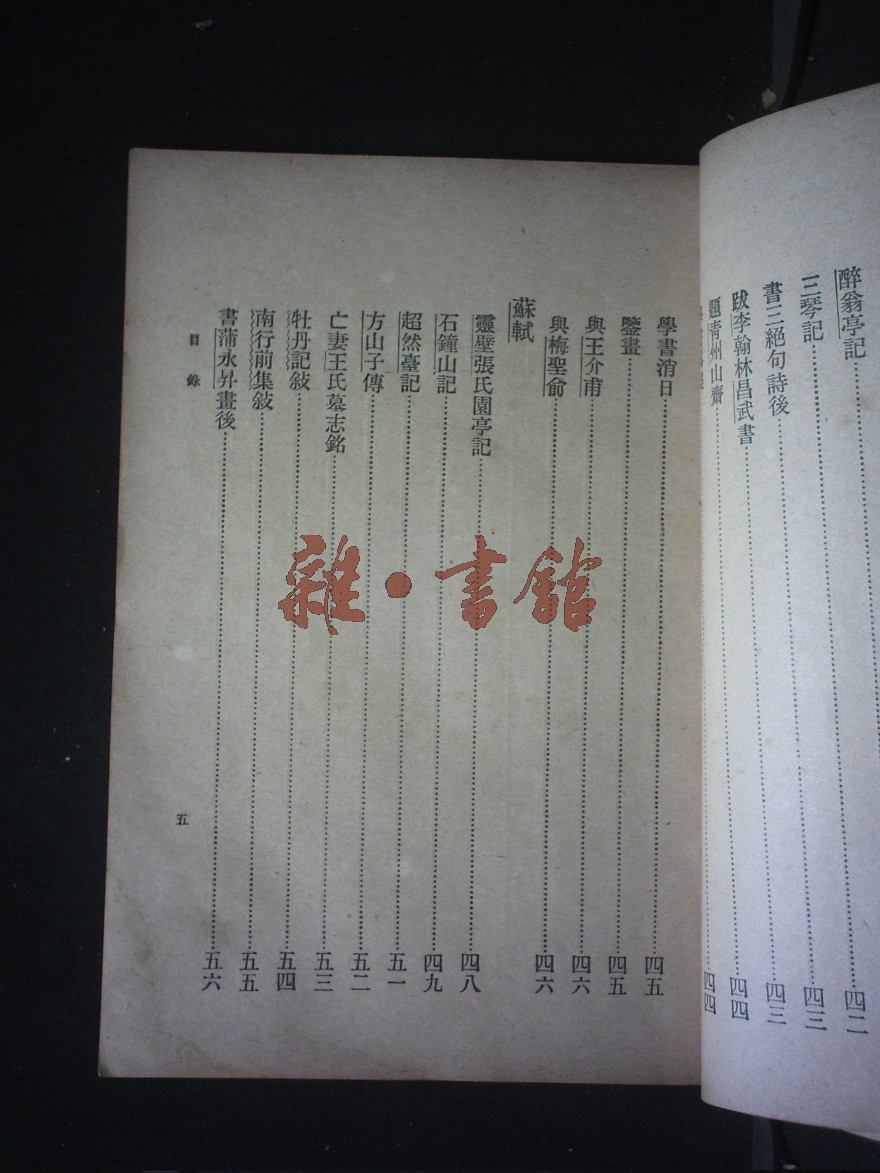 醉翁亭記……四二
三琴記……四三
書三絕句詩後……四三
跋李翰林昌武書……四四
題青州山齋……四四
學書消日……四五
鑒畫……四五
與王介甫……四六
與梅聖俞……四六
蘇軾
靈壁張氏園亭記……四八
石鐘山記……四九
超然臺記……五一
方山子傳……五二
亡妻王氏墓志銘……五三
牡丹記敍……五四
南行前集敍……五五
書蒲永昇畫後……五六
目錄
五
雜·書館